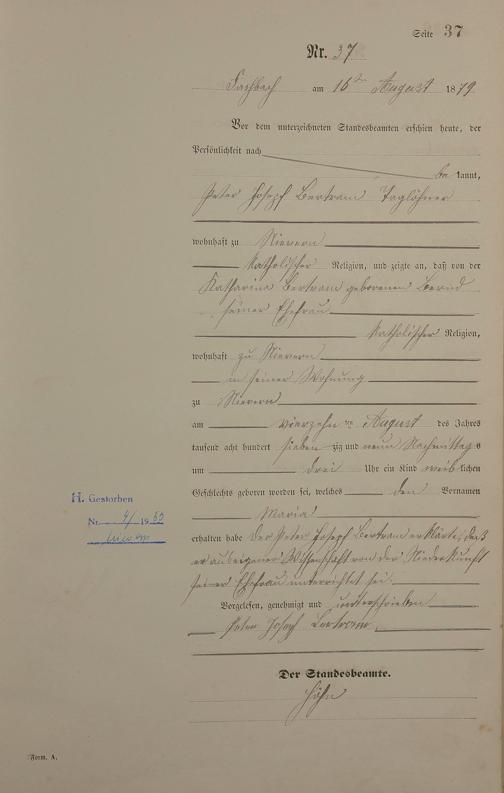 Seite 37
Nr. 37.
Fachbach am 16ten August 1879
Vor dem unterzeichneten Standesbeamten erschien heute, der
Persönlichkeit nach
be kannt,
Peter Josef Bertram Taglöhner
wohnhaft zu Nievern
katholischer Religion, und zeigte an, daß von der
Katharina Bertram geborenen
seiner Ehefrau
katholischer Religion,
wohnhaft zu Nievern
in seiner Wohnung
zu Nievern
am vierzehn ten August des Jahres
tausend acht hundert sieben zig und neun Nachmittags
um drei Uhr ein Kind weiblichen
Geschlechts geboren worden sei, welches den Vornamen
Maria
erhalten habe Der Peter Josef Bertram erklärte, daß
er aus eigener Wissenschaft von der Niederkunft
seiner Ehefrau unterrichtet sei.
Vorgelesen, genehmigt und unterschrieben
Peter Josef Bertram
Der Standesbeamte.
Höhn
H. Gestorben
Nr. 4/19
Form. A.